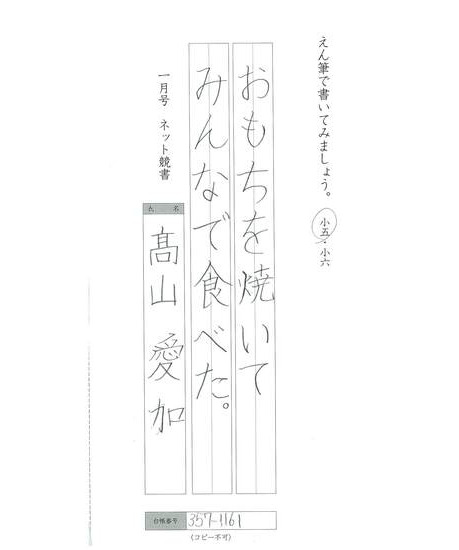 えん筆で書いてみましょう。
小五・小六
おもちを焼いて
みんなで食べた。
一月号 ネット競書
氏 名
髙山 愛加
台帳番号 357-1161
(コピー不可)